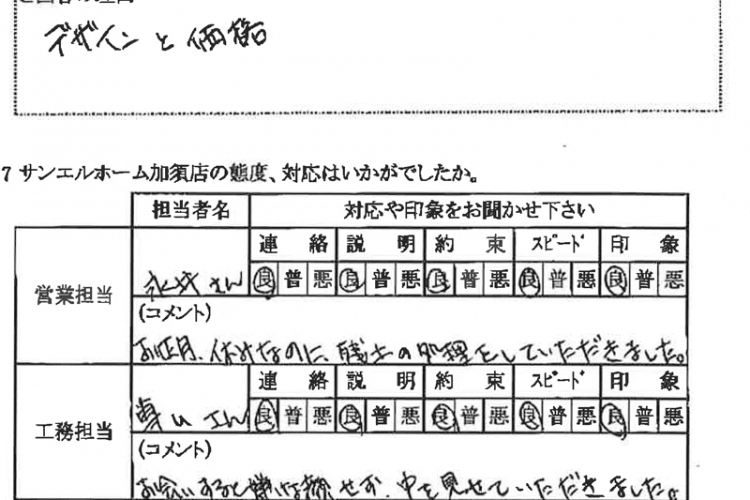 デザインと価格
7 サンエルホーム加須店の態度、対応はいかがでしたか。
担当者名 対応や印象をお聞かせ下さい
連絡 説明 約束 スピード 印象
営業担当 永井さん 良 普 悪 良 普 悪 良 普 悪 良 普 悪 良 普 悪
(コメント)
お正月、休みなのに、残土の処理をしていただきました。
連絡 説明 約束 スピード 印象
工務担当 さん 良 普 悪 良 普 悪 良 普 悪 良 普 悪 良 普 悪
(コメント)
お会いすると嫌な顔せず、中を見せていただきました。